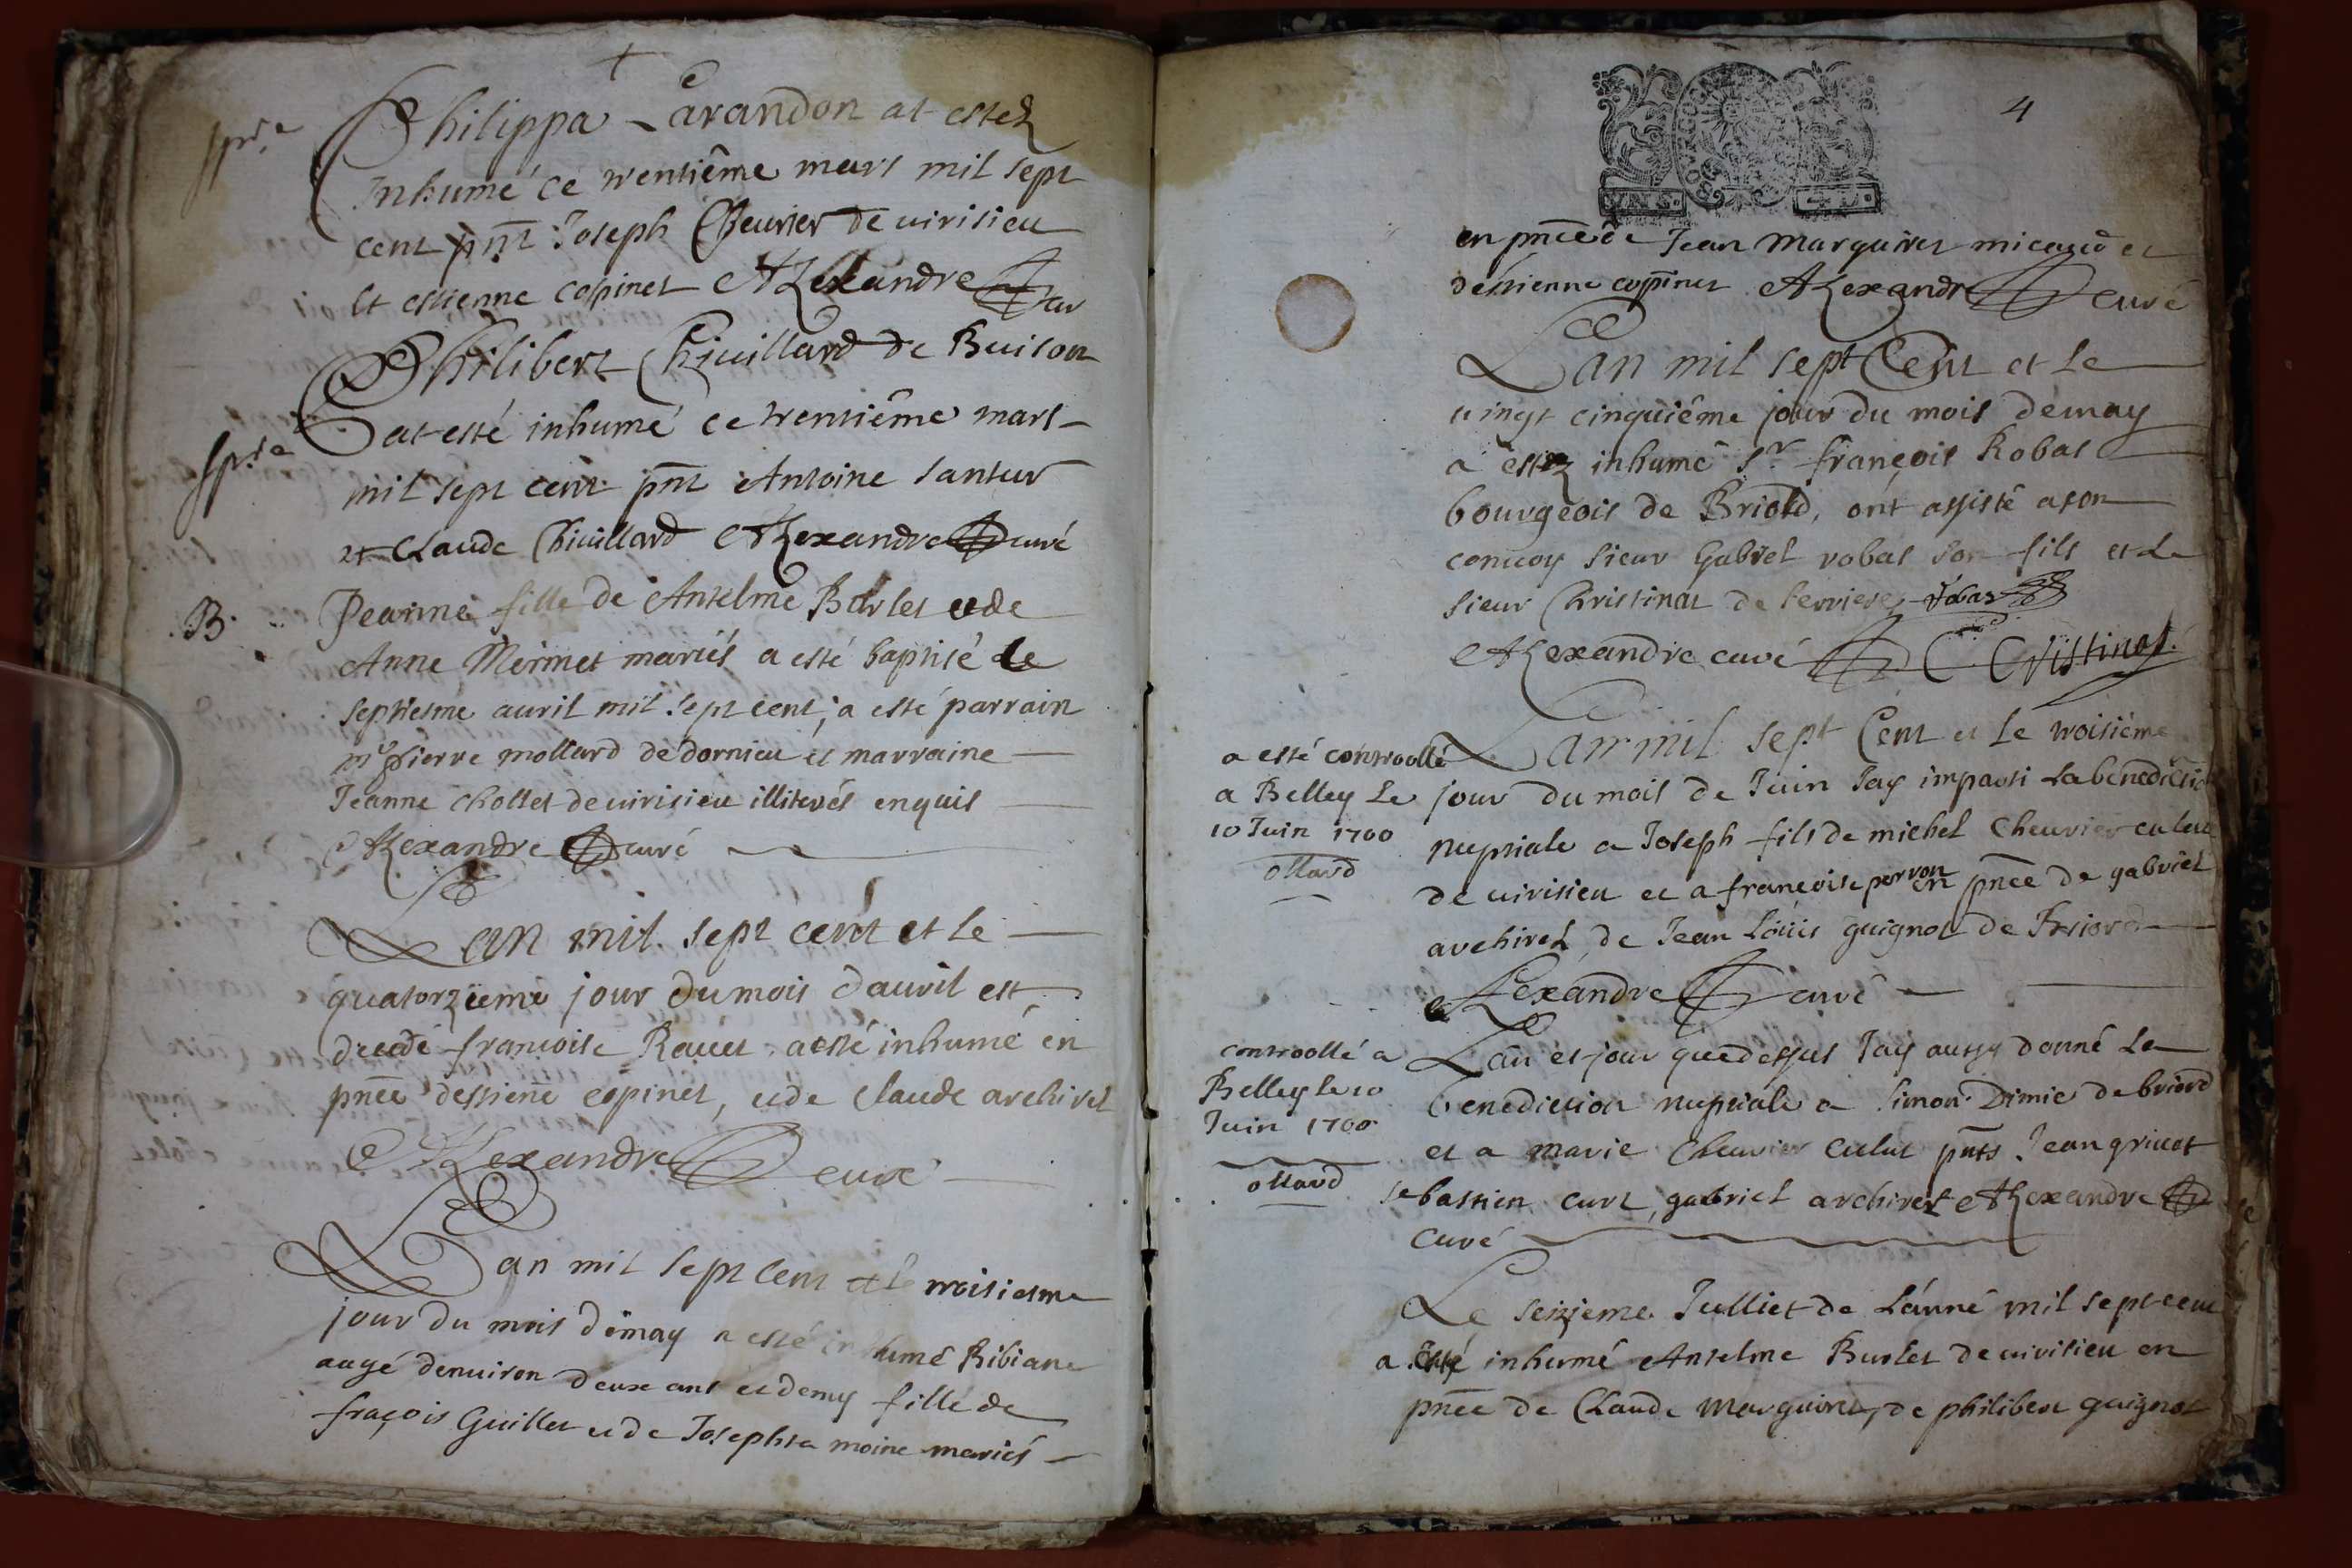 Philippa Larandon at estez
Inhumé ce trentiême mars mil sept
cent pnt Joseph Cheurier de uirisieu
et estienne copinet Alexandre cur
Philibert Chiuillard de Buison
at esté inhumé ce trentiême mars
mil sept cent pnt Antoine santur
et Claude Chiuillard Alexandre curé
B.
Jeanne fille de Antelme Burlet et de
Anne Mermet mariés a esté baptisé le
septiesme auril mil sept cent, a esté parrain
mr pierre mollard de dornieu et marraine
Jeanne Chollet de uirisieu illiterés enquis
Alexandre curé
Lan mil sept cent et le
quatorzieme jour du mois dauril est
decedé francoise Rauet a esté inhumé en
pnce destiene copinet, et de Claude archiret
Alexandre curé
Lan mil sept cent et le troisiesme
jour du mois de may a esté inhumé Bibiane
aagé denuiron deux ans et demy fille de
fraçois Guillet et de Josephta moine mariés
4
en pnce de Jean Marguiret et
destienne copinet Alexandre curé
Lan mil sept Cent et le
uingt cinquiéme jour du mois de may
a estez inhumé Sr françois Robat
bourgeois de Briord, ont assisté a son
conuoy sieur Gabriel robat son fils et le
sieur Christinat de serriere Robat
Alexandre curé C Cristinat
a esté controollé
a Belley Le
10 Juin 1700
ollard
Lan mil sept Cent et le troisiéme
jour du mois de Juin Jay imparti la benediction
nuptiale a Joseph fils de michel Cheurier culut
de uirisieu et a françoise perron en pnce de gabriel
archiret, de Jean Loüis guignot de Briord
Alexandre curé
controollé a
Belley le 10
Juin 1700
ollard
Lan et jour que dessus Jay aussy donné la
benediction nuptiale a simon Dimie de briord
et a marie Cheurier Culut pnts Jean griuot
sebastien curt, gabriel archiret Alexandre
Curé
Le seizieme Julliet de Lánné mil sept cent
a esté inhumé Antelme Burlet de uirisieu en
pnce de Claude Marguiret, de philibert guignot